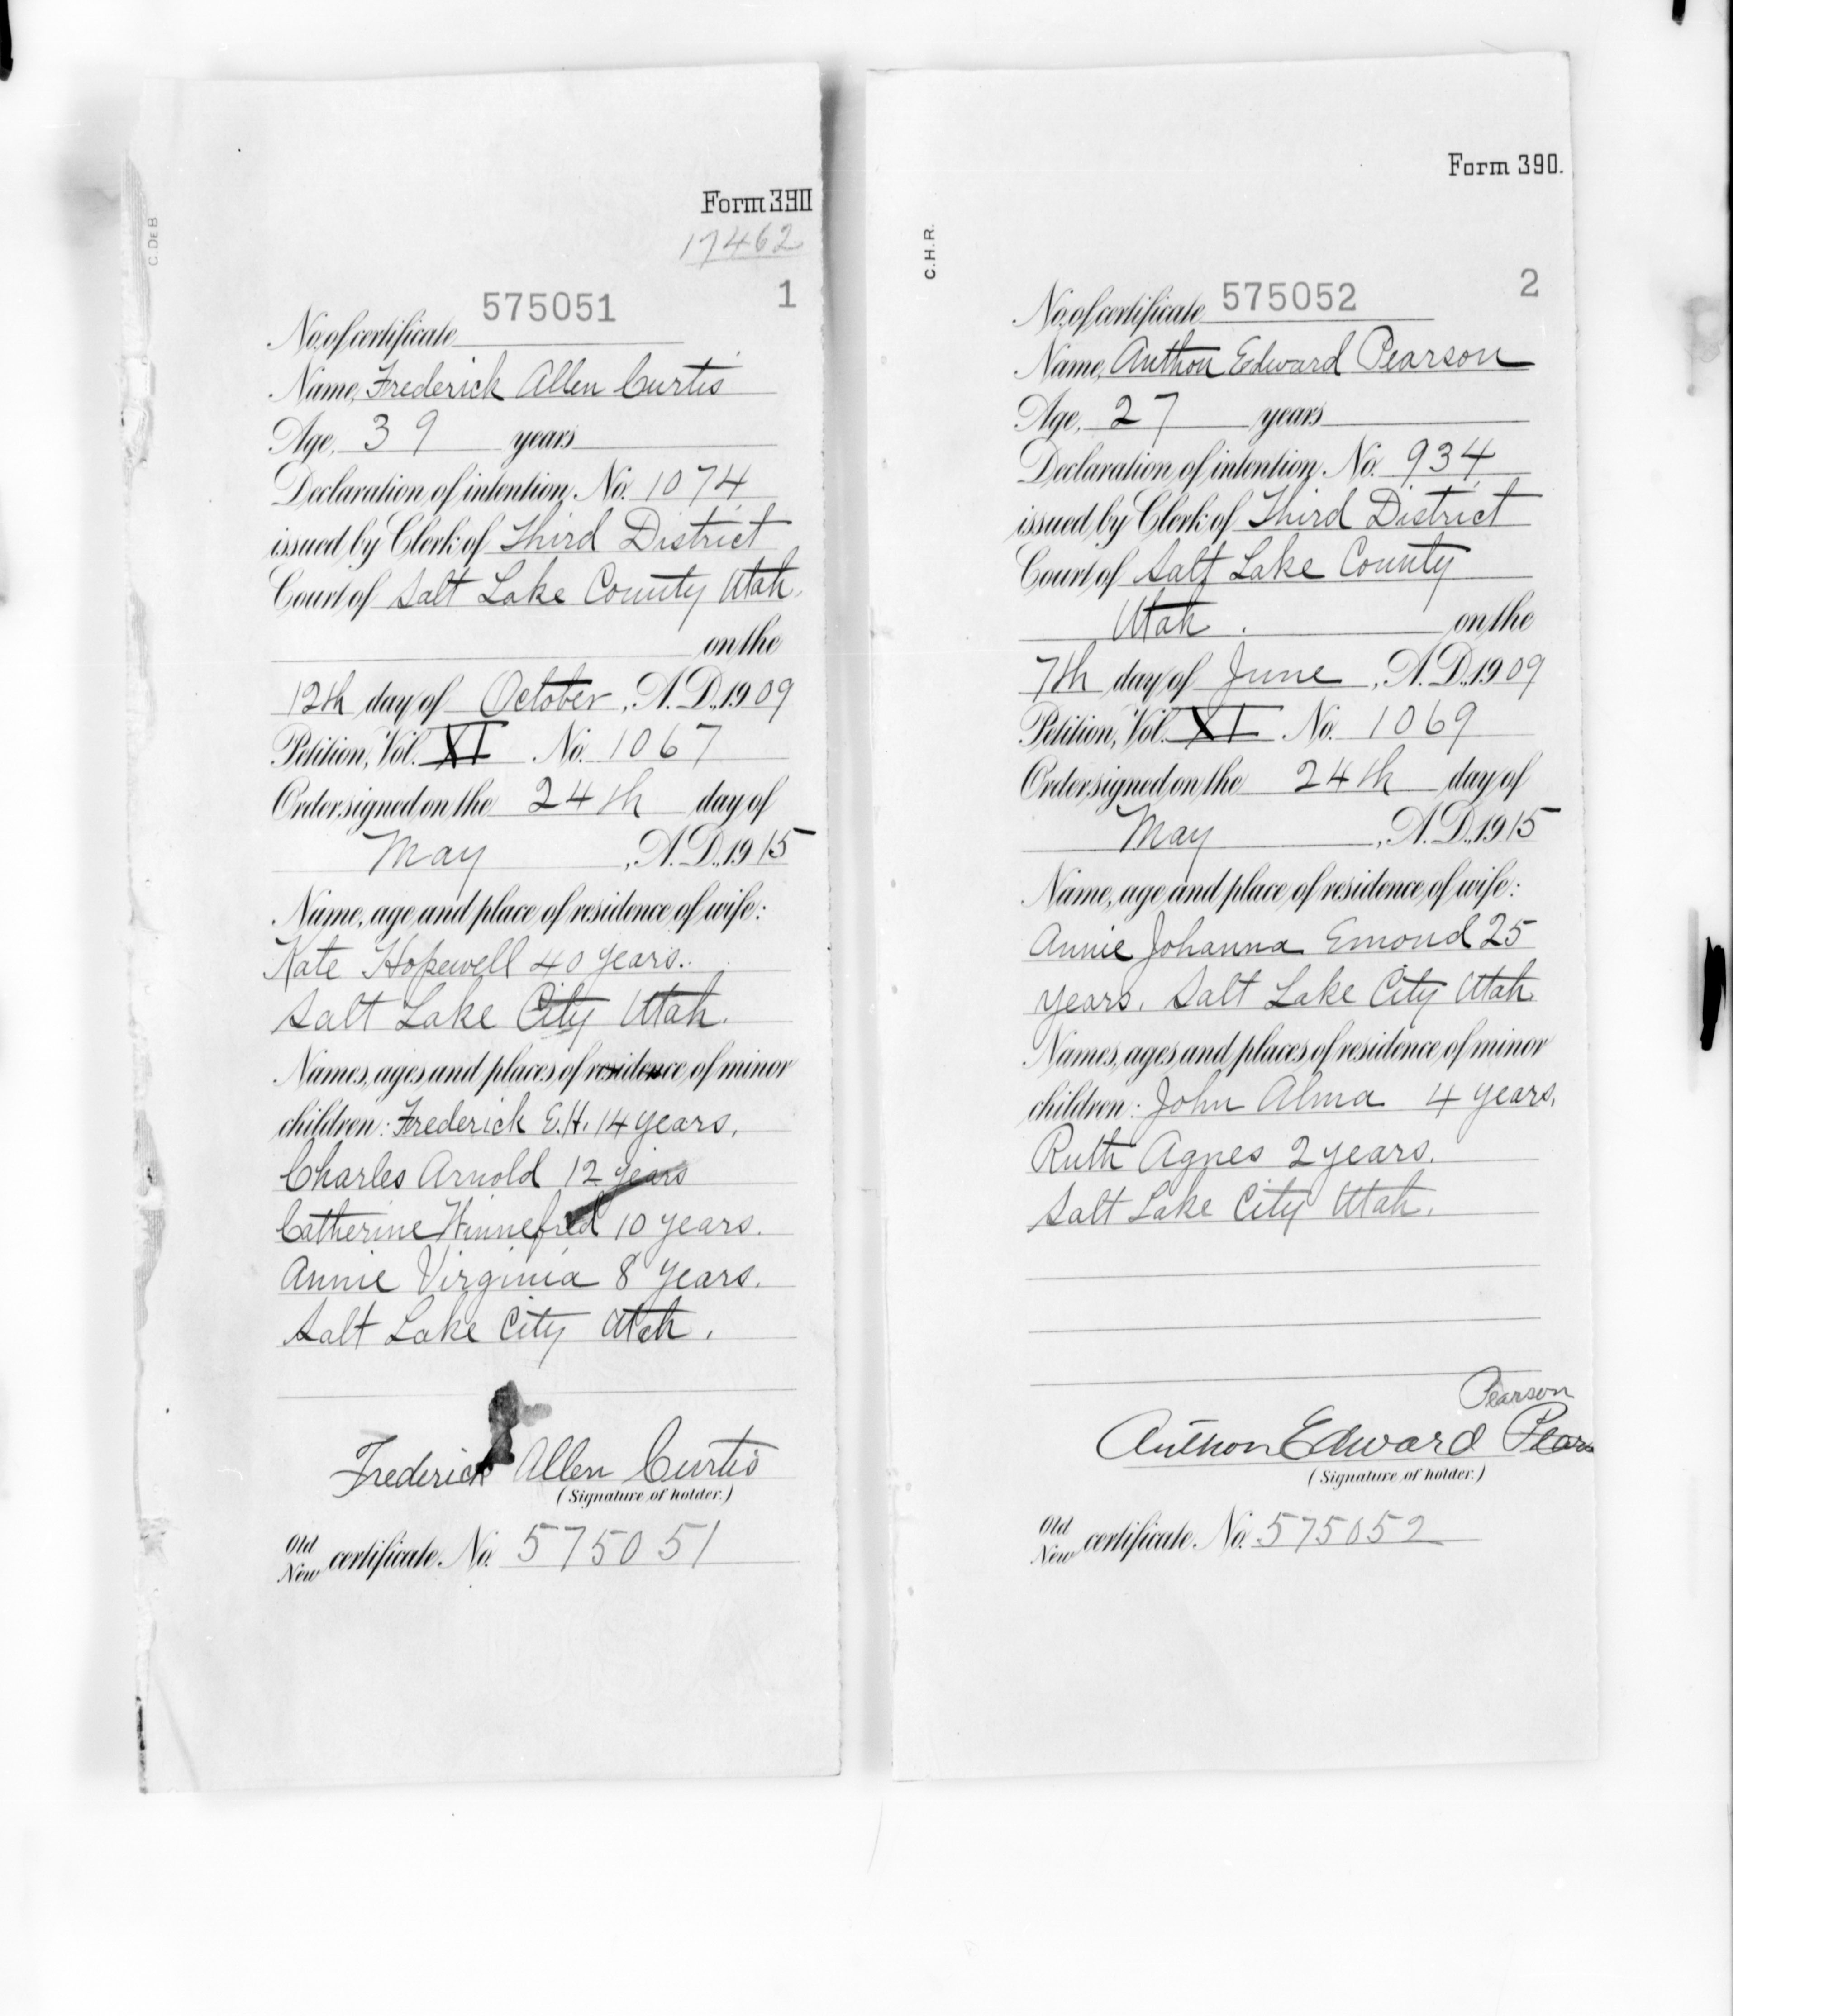 C. DE B
Form 390
17462
1
No. of certificate 575051
Name, Frederick Allen Curtis
Age, 39 years
Declaration of intention, No. 1074
issued by Clerk of Third District
Court of Salt Lake County Utah.
on the
12th day of October, A. D., 1909
Petition, Vol. XI No. 1067
Order signed on the 24th day of
May, A. D., 1915
Name, age and place of residence of wife:
Kate Hopewell 40 years.
Salt Lake City Utah.
Names, ages and places of residence of minor
children: Frederick E.H. 14 years.
Charles Arnold 12 years
Catherine Winnefred 10 years.
Annie Virginia 8 years.
Salt Lake City Utah.
Frederick Allen Curtis
(Signature of holder.)
Old
New certificate No. 575051
C. H. R.
Form 390.
2
No. of certificate 575052
Name, Anthon Edward Pearson
Age, 27 years
Declaration of intention, No. 934
issued by Clerk of Third District
Court of Salt Lake County
Utah. on the
7th day of June, A. D., 1909
Petition, Vol. XI No. 1069
Order signed on the 24th day of
May, A. D., 1915
Name, age and place of residence of wife:
Annie Johanna Emond 25
years. Salt Lake City Utah.
Names, ages and places of residence of minor
children: John Alma 4 years.
Ruth Agnes 2 years.
Salt Lake City Utah.
Pearson
Anthon Edward Pears
(Signature of holder.)
Old
New certificate No. 575052